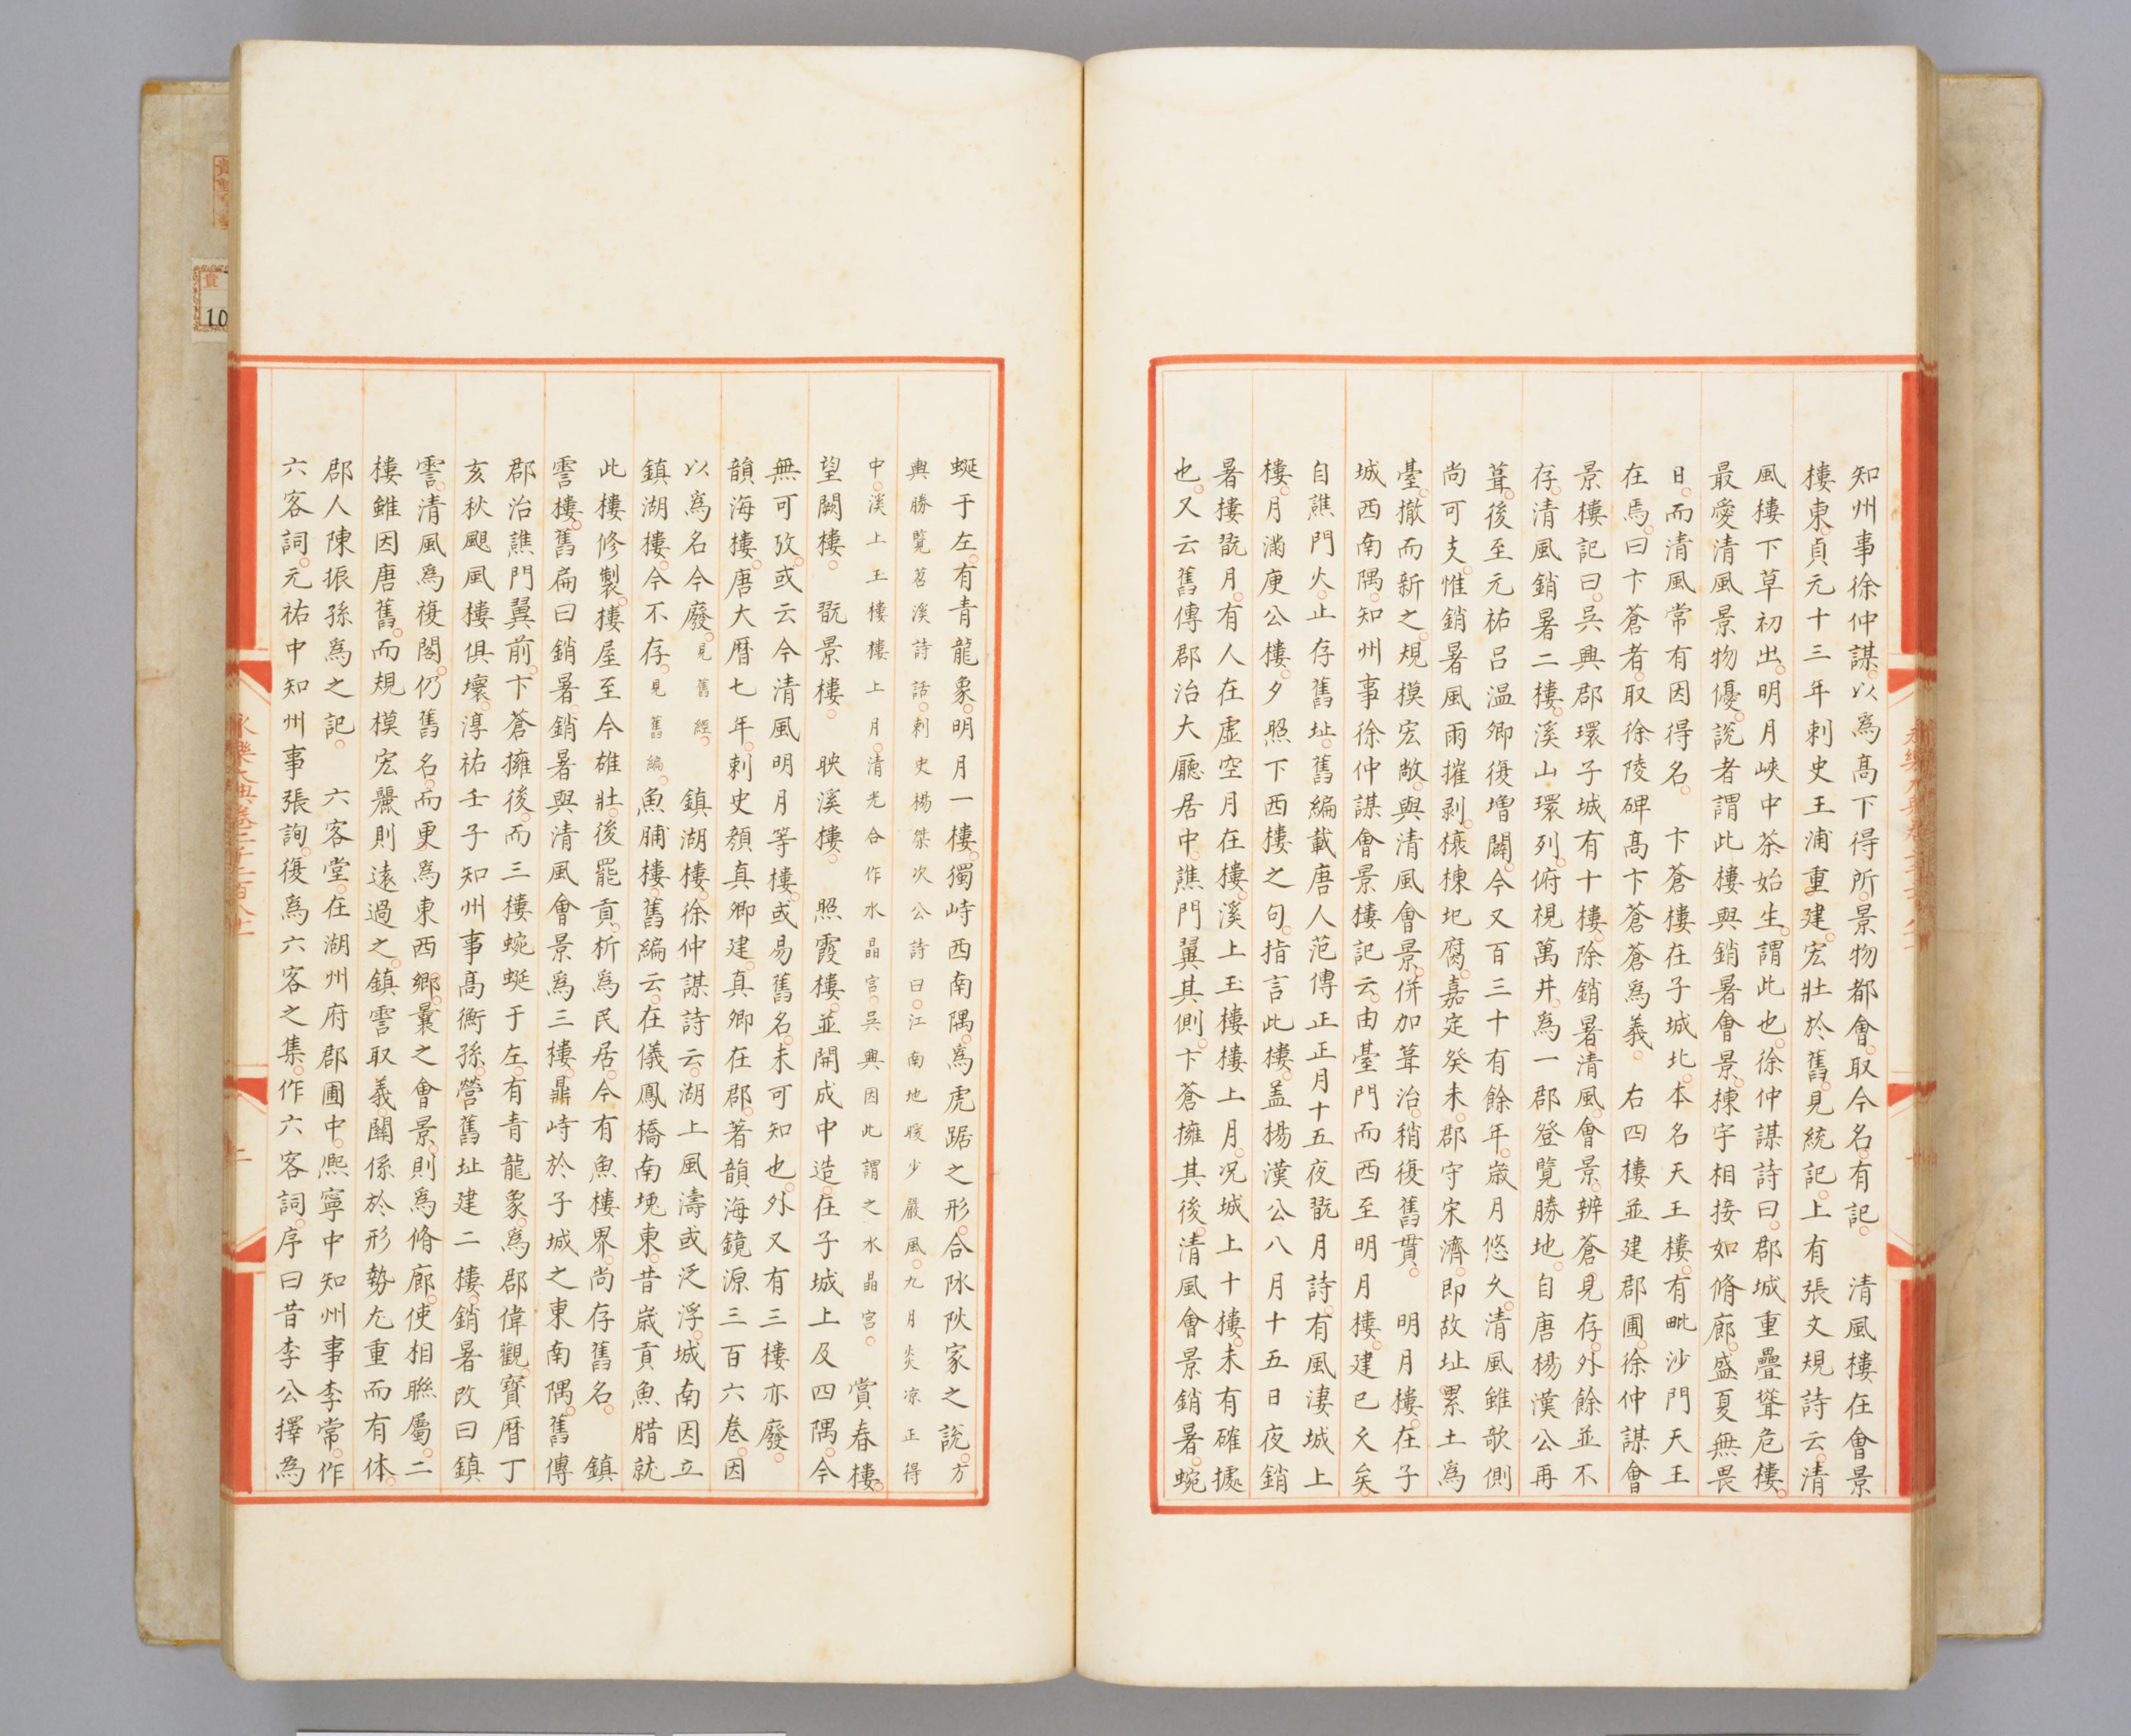 知州事徐仲謀。以爲髙下得所。景物都會。取今名。有記。　清風樓在會景
樓東。貞元十三年刺史王浦重建。宏壯於舊。見統記。上有張文規詩云。清
風樓下草初出。明月峽中茶始生。謂此也。徐仲謀詩曰。郡城重疊聳危樓。
最愛清風景物優。說者謂此樓與銷暑會景。棟宇相接如脩廊。盛夏無畏
日。而清風常有因得名。　卞蒼樓在子城北。本名天王樓。有毗沙門天王
在焉。曰卞蒼者。取徐陵碑髙卞蒼蒼爲義。　右四樓並建郡圃。徐仲謀會
景樓記曰。吳興郡環子城有十樓。除銷暑清風。會景。辨蒼見存。外餘並不
存。清風銷暑二樓。溪山環列。俯視萬井。爲一郡登覽勝地。自唐楊漢公再
葺。後至元祐吕温卿復增闢。今又百三十有餘年。歲月悠久。清風雖歌側
尚可支。惟銷暑風雨摧剥。榱棟圯腐。嘉定癸未。郡守宋濟。即故址累土爲
臺。撤而新之。規模宏敞。與清風會景。併加葺治。稍復舊貫。　明月樓。在子
城西南隅。知州事徐仲謀會景樓記云。由臺門而西至明月樓。建已久矣。
自譙門火。止存舊址。舊編載唐人范傳正正月十五夜翫月詩。有風凄城上
樓。月滿庾公樓。夕照下西樓之句。指言此樓。盖楊漢公八月十五日夜銷
暑樓翫月。有人在虛空月在樓。溪上玉樓樓上月。况城上十樓。未有確據
也。又云舊傳郡治大廳居中。譙門翼其側。卞蒼擁其後。清風會景銷暑。蜿
蜒于左。有青龍象。明月一樓。獨峙西南隅。爲虎踞之形。合陎陜家之說。方
輿勝覽苕溪詩話。刺史楊桀次公詩曰。江南地暖少嚴風。九月炎凉正得
中。溪上玉樓樓上月。清光合作水晶宫。吳興因此謂之水晶宫。　賞春樓。
望闕樓。　翫景樓。　映溪樓。　照霞樓。並開成中造。在子城上及四隅。今
無可攷。或云今清風明月等樓。或易舊名。未可知也。外又有三樓亦廢。
韻海樓。唐大曆七年。刺史顔真卿建。真卿在郡。著韻海鏡源三百六卷。因
以爲名今廢。見舊經。　鎮湖樓。徐仲謀詩云。湖上風濤或泛浮。城南因立
鎮湖樓。今不存。見舊編。魚脯樓。舊編云。在儀鳳橋南堍東。昔歲貢魚腊就
此樓修製。樓屋至今雄壯。後罷貢。析爲民居。今有魚樓界。尚存舊名。　鎮
霅樓。舊扁曰銷暑。銷暑與清風會景爲三樓。鼎峙於子城之東南隅。舊傳
郡治譙門翼前。卞蒼擁後。而三樓蜿蜒于左。有青龍象。爲郡偉觀。寶曆丁
亥秋颶風樓俱壞。淳祐壬子知州事髙衡孫。營舊址建二樓。銷暑改曰鎮
霅。清風爲複閣。仍舊名。而更爲東西鄉。曩之會景。則爲脩廊。使相聯屬。二
樓雖因唐舊。而規模宏麗則遠過之。鎮霅取義。關係於形勢尤重而有体。
郡人陳振孫爲之記。　六客堂。在湖州府郡圃中。熈寧中知州事李常。作
六客詞。元祐中知州事張詢。復爲六客之集。作六客詞。序曰昔李公擇爲